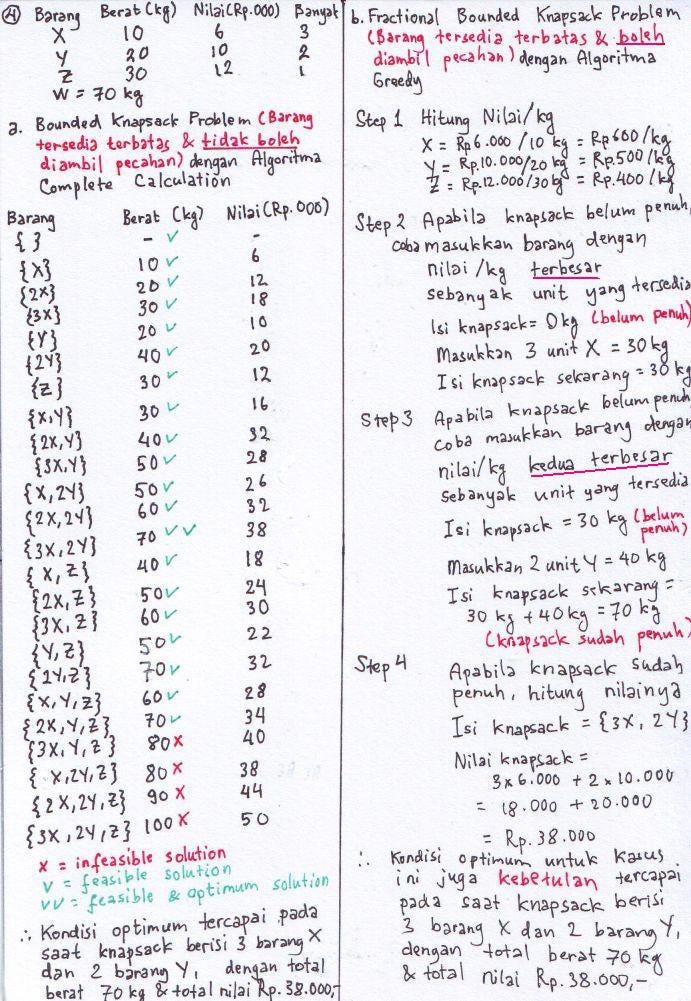 4 Barang Berat (kg) Nilai (Rp.000) Banyak
X 10 6 3
Y 20 10 2
Z 30 12 1
W = 70 kg
a. Bounded Knapsack Problem (Barang
tersedia terbatas & tidak boleh
diambil pecahan) dengan Algoritma
Complete Calculation
Barang Berat (kg) Nilai (Rp.000)
{ } - ✓ -
{X} 10 ✓ 6
{2X} 20 ✓ 12
{3X} 30 ✓ 18
{Y} 20 ✓ 10
{2Y} 40 ✓ 20
{Z} 30 ✓ 12
{X,Y} 30 ✓ 16
{2X,Y} 40 ✓ 32
{3X,Y} 50 ✓ 28
{X,2Y} 50 ✓ 26
{2X,2Y} 60 ✓ 32
{3X,2Y} 70 ✓✓ 38
{X,Z} 40 ✓ 18
{2X,Z} 50 ✓ 24
{3X,Z} 60 ✓ 30
{Y,Z} 50 ✓ 22
{2Y,Z} 70 ✓ 32
{X,Y,Z} 60 ✓ 28
{2X,Y,Z} 70 ✓ 34
{3X,Y,Z} 80 X 40
{X,2Y,Z} 80 X 38
{2X,2Y,Z} 90 X 44
{3X,2Y,Z} 100 X 50
X = infeasible solution
V = feasible solution
VV = feasible & optimum solution
∴ Kondisi optimum tercapai pada
saat knapsack berisi 3 barang X
dan 2 barang Y, dengan total
berat 70 kg & total nilai Rp. 38.000,-
b. Fractional Bounded Knapsack Problem
(Barang tersedia terbatas & boleh
diambil pecahan) dengan Algoritma
Greedy
Step 1 Hitung Nilai/kg
X = Rp 6.000 / 10 kg = Rp 600/kg
Y = Rp.10.000/20 kg = Rp.500/kg
Z = Rp.12.000/30 kg = Rp.400/kg
Step 2 Apabila knapsack belum penuh,
coba masukkan barang dengan
nilai/kg terbesar
sebanyak unit yang tersedia
Isi knapsack = 0 kg (belum penuh)
Masukkan 3 unit X = 30 kg
Isi knapsack sekarang = 30 kg
Step 3 Apabila knapsack belum penuh
coba masukkan barang dengan
nilai/kg kedua terbesar
sebanyak unit yang tersedia
Isi knapsack = 30 kg (belum
penuh)
Masukkan 2 unit Y = 40 kg
Isi knapsack sekarang =
30 kg + 40 kg = 70 kg
(knapsack sudah penuh)
Step 4 Apabila knapsack sudah
penuh, hitung nilainya
Isi knapsack = {3X, 2Y}
Nilai knapsack =
3 x 6.000 + 2 x 10.000
= 18.000 + 20.000
= Rp. 38.000
∴ Kondisi optimum untuk kasus
ini juga kebetulan tercapai
pada saat knapsack berisi
3 barang X dan 2 barang Y,
dengan total berat 70 kg
& total nilai Rp. 38.000,-